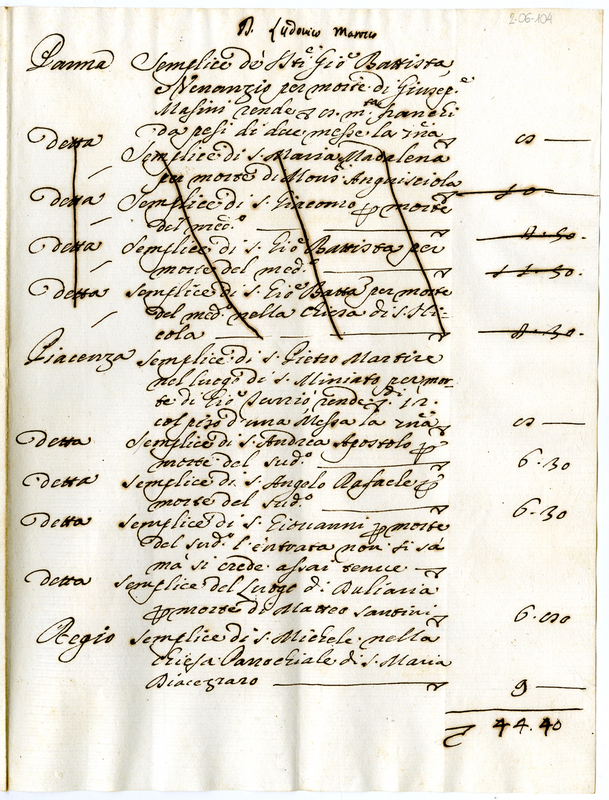 2-06-104
D. Ludovico Marcio
Parma Semplice de Sti Gio Battista
e Venanzio per morte di Giusep.e
Masini rende
da pesi di due messe la
Detta Semplice di S. Maria Madalena
per morte di Mons. Anguisciola 10
Detta Semplice di S. Giacomo morte
del med.o
Detta Semplice di S. Gio Battista per
morte del med.o 11.50.
Detta Semplice di S. Gio Batta per morte
del med.o nella chiesa di S. Ni-
cola
Piacenza Semplice di S. Pietro Martire
nel luogo di S. Miniato per mor-
te di Gio rende 12.
col pizo d'una Messa la
Detta Semplice di S. Andrea Apostolo
morte del sud.o 6.30
Detta Semplice di S. Angolo Rafaele
morte del sud.o 6.30
Detta Semplice di S. Giovanni morte
del sud.o l'entrata non si sà
mà si crede assai tenue
Detta Semplice del Luogo di Duliaria
morte di Matteo Santini 6.
Regio Semplice di S. Michele nella
chiesa Parochiale di S. Maria
9
44.40